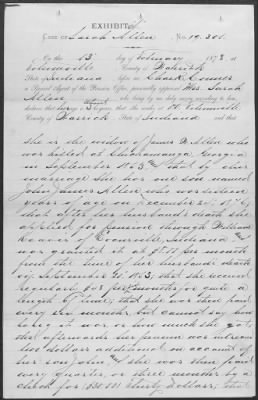 EXHIBIT
Case of Sarah Allen No. 19.301.
On this 13 day of February 1878, at
County of Warrick
State of Indiana before me
a Special Agent of the Pension Office, personally appeared Mrs. Sarah
Allen who being by me duly sworn according to law,
County of Warrick State of Indiana and that
she is the widow of James Allen who
was killed at Chickamauga Georgia
in September 1863 that by her
marriage she has one son named
John James Allen who was sixteen
years of age on December
that after her husband's death she
applied for pension through William
of Boonville, Indiana &
was granted it at $8.00 per month
from the time of her husband's death
viz September 20. 1863; that she received
regularly for quite a
length of time; that she was then paid
every six months, but cannot say how
long it was or how much she got,
that afterwards her pension was increased
two dollars additional on account of
her son John, and she was then paid
every quarter, or three months by a
check for $30.00, thirty dollars; that